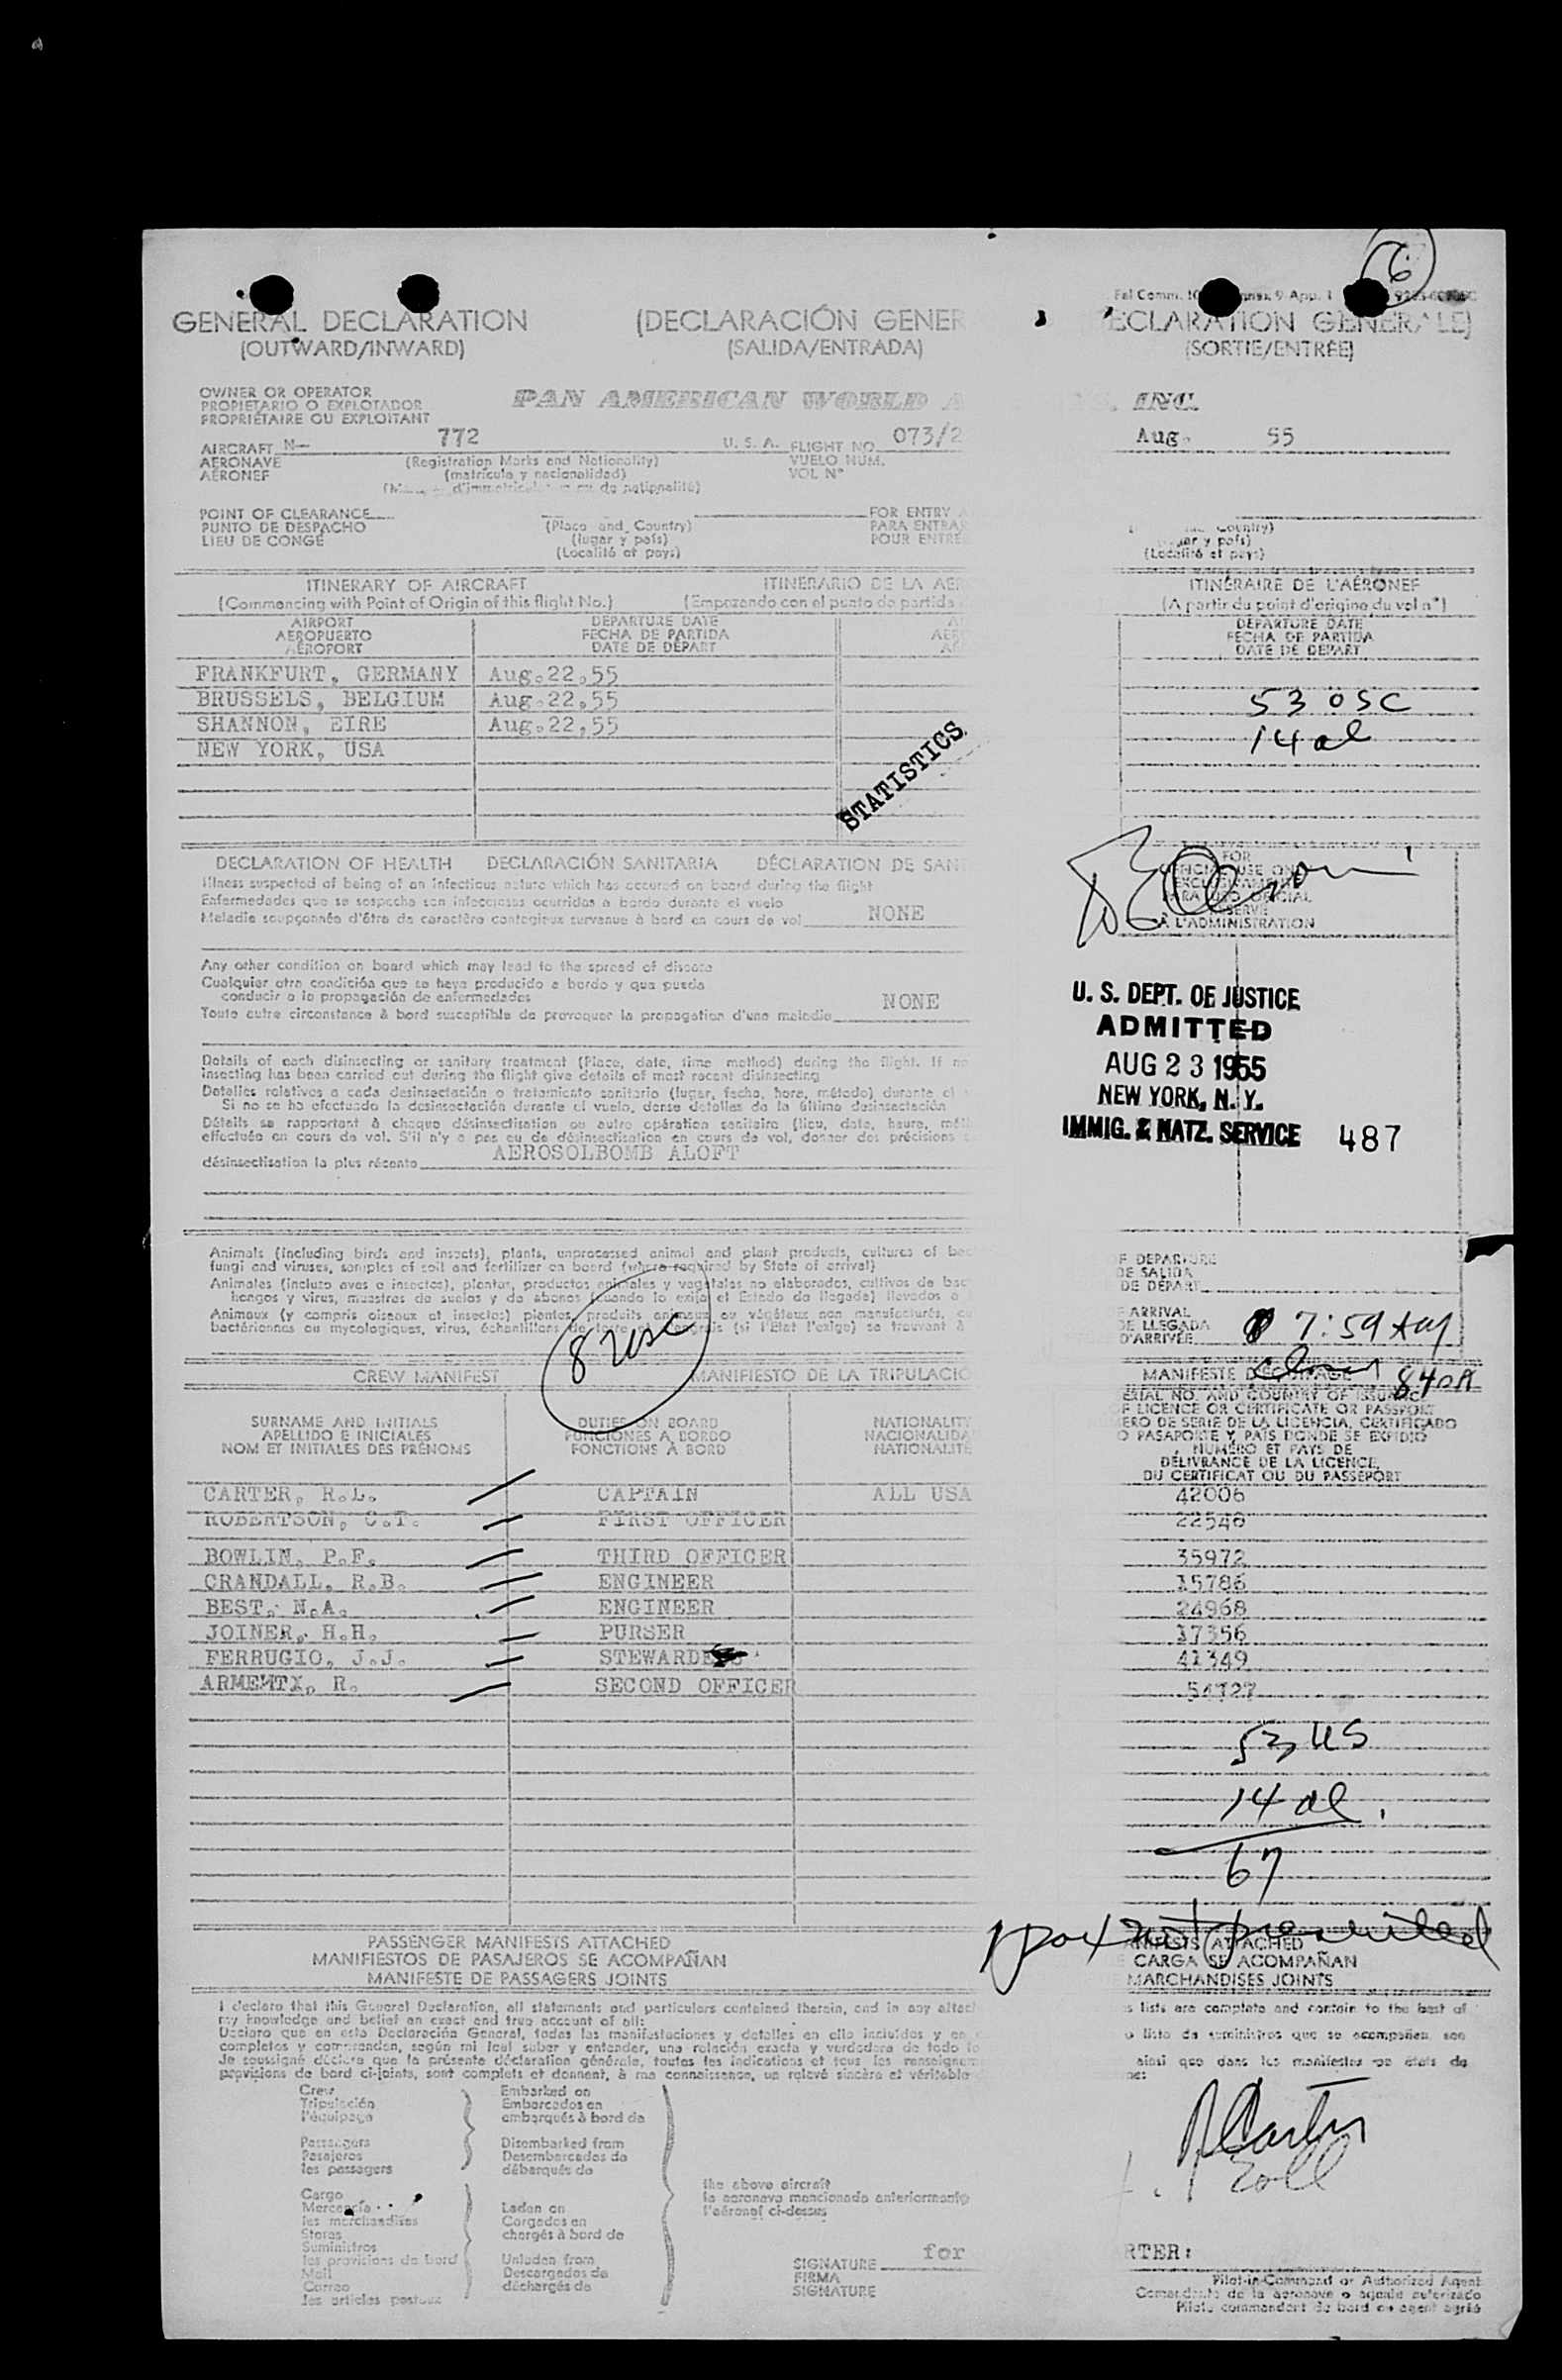 6
Fal Comm. 10 Annex 9 App. 1
GENERAL DECLARATION (DECLARACIÓN GENER ECLARATION GENERALE)
(OUTWARD/INWARD) (SALIDA/ENTRADA) (SORTIE/ENTRÉE)
OWNER OR OPERATOR
PROPIETARIO O EXPLOTADOR PAN AMERICAN WORLD A S, INC.
PROPRIÉTAIRE OU EXPLOITANT
AIRCRAFT N- 772 U. S. A. FLIGHT NO. 073/2 Aug. 55
AERONAVE (Registration Marks and Nationality) VUELO NUM.
AÉRONEF (matrícula y nacionalidad) VOL Nº
d'immatriculation ou de nationalité)
POINT OF CLEARANCE FOR ENTRY
PUNTO DE DESPACHO (Place and Country) PARA ENTRA Country)
LIEU DE CONGÉ (lugar y país) POUR ENTRÉE gar y país)
(Localité et pays) (Localité et pays)
ITINERARY OF AIRCRAFT ITINERARIO DE LA AER ITINÉRAIRE DE L'AÉRONEF
(Commencing with Point of Origin of this flight No.) (Empezando con el punto de partida (A partir du point d'origine du vol nº)
AIRPORT DEPARTURE DATE DEPARTURE DATE
AEROPUERTO FECHA DE PARTIDA AER FECHA DE PARTIDA
AÉROPORT DATE DE DÉPART DATE DE DÉPART
FRANKFURT, GERMANY Aug.22,55
BRUSSELS, BELGIUM Aug.22,55 53 OSC
SHANNON, EIRE Aug.22,55 14 al
NEW YORK, USA
STATISTICS
DECLARATION OF HEALTH DECLARACIÓN SANITARIA DÉCLARATION DE SAN
FOR
OFFICIAL USE ONLY
EXCLUSIVAMENTE
PARA USO OFICIAL
RÉSERVÉ
À L'ADMINISTRATION
Illness suspected of being of an infectious nature which has occured on board during the flight
Enfermedades que se sospecha son infecciosas ocurridas a bordo durante el vuelo
Maladie soupçonnée d'être de caractère contagieux survenue à bord en cours de vol NONE
Any other condition on board which may lead to the spread of disease
Cualquier otra condición que se haya producido a bordo y que pueda
conducir a la propagación de enfermedades
Toute autre circonstance à bord susceptible de provoquer la propagation d'une maladie NONE
U. S. DEPT. OF JUSTICE
ADMITTED
AUG 23 1955
NEW YORK, N. Y.
IMMIG. & NATZ. SERVICE 487
Details of each disinsecting or sanitary treatment (Place, date, time method) during the flight. If no
insecting has been carried out during the flight give details of most recent disinsecting
Detalles relativos a cada desinsectación o tratamiento sanitario (lugar, fecha, hora, método) durante el
Si no se ha efectuado la desinsectación durante el vuelo, dense detalles de la última desinsectación
Détails se rapportant à chaque désinsectisation ou autre opération sanitaire (lieu, date, heure, mét
effectuée en cours de vol. S'il n'y a pas eu de désinsectisation en cours de vol, donner des précisions
désinsectisation la plus récente AEROSOLBOMB ALOFT
Animals (including birds and insects), plants, unprocessed animal and plant products, cultures of bac
fungi and viruses, samples of soil and fertilizer on board (where required by State of arrival)
Animales (incluso aves e insectos), plantas, productos animales y vegetales no elaborados, cultivos de bac
hongos y virus, muestras de suelos y de abonos (cuando lo exija el Estado de llegada) llevados a
Animaux (y compris oiseaux et insectes) plantes, produits animaux ou végétaux non manufacturés, cu
bactériennes ou mycologiques, virus, échantillons de terre et d'engrais (si l'État l'exige) se trouvant à
F DEPARTURE
DE SALIDA
DE DÉPART
E ARRIVAL
DE LLEGADA 7:59
D'ARRIVÉE
CREW MANIFEST MANIFIESTO DE LA TRIPULACIO MANIFESTE D'ÉQUIPAGE 840A
SURNAME AND INITIALS DUTIES ON BOARD NATIONALITY
APELLIDO E INICIALES FUNCIONES A BORDO NACIONALIDA
NOM ET INITIALES DES PRÉNOMS FONCTIONS À BORD NATIONALITÉ
ERIAL NO. AND COUNTRY OF ISSUANCE
F LICENCE OR CERTIFICATE OR PASSPORT
ERO DE SERIE DE LA LICENCIA, CERTIFICADO
O PASAPORTE Y PAIS DONDE SE EXPIDIO
NUMÉRO ET PAYS DE
DÉLIVRANCE DE LA LICENCE,
DU CERTIFICAT OU DU PASSEPORT
CARTER, R.L. CAPTAIN ALL USA 42006
ROBERTSON, C.T. FIRST OFFICER 22540
BOWLIN, P.F. THIRD OFFICER 35972
CRANDALL, R.B. ENGINEER 15786
BEST, N.A. ENGINEER 24968
JOINER, H.H. PURSER 17356
FERRUGIO, J.J. STEWARDE 41349
ARMENTI, R. SECOND OFFICER 54727
53 US
14 al.
67
1 pax not presented
PASSENGER MANIFESTS ATTACHED ANIFESTS ATTACHED
MANIFIESTOS DE PASAJEROS SE ACOMPAÑAN CARGA SE ACOMPAÑAN
MANIFESTE DE PASSAGERS JOINTS MARCHANDISES JOINTS
I declare that this General Declaration, all statements and particulars contained therein, and in any attach s lists are complete and contain to the best of
my knowledge and belief an exact and true account of all:
Declaro que en esta Declaración General, todas las manifestaciones y detalles en ella incluídos y en o lista de suministros que se acompañen, son
completos y comprenden, según mi leal saber y entender, una relación exacta y verdadera de todo lo
Je soussigné déclare que la présente déclaration générale, toutes les indications et tous les renseignem ainsi que dans les manifestes ou états de
provisions de bord ci-joints, sont complets et donnent, à ma connaissance, un relevé sincère et véritable ne:
Crew Embarked on
Tripulación Embarcados en
l'équipage embarqués à bord de
Passengers Disembarked from
Pasajeros Desembarcados de
les passagers débarqués de
the above aircraft
la aeronave mencionada anteriormente
l'aéronef ci-dessus
Cargo
Mercancía Laden on
les marchandises Cargados en
Stores chargés à bord de
Suministros
les provisions de bord Unladen from
Mail Descargados de
Correo déchargés de
les articles postaux
R Carter
SIGNATURE for RTER:
FIRMA Pilot-in-Command or Authorized Agent
SIGNATURE Comandante de la aeronave o agente autorizado
Pilote commandant de bord ou agent agréé